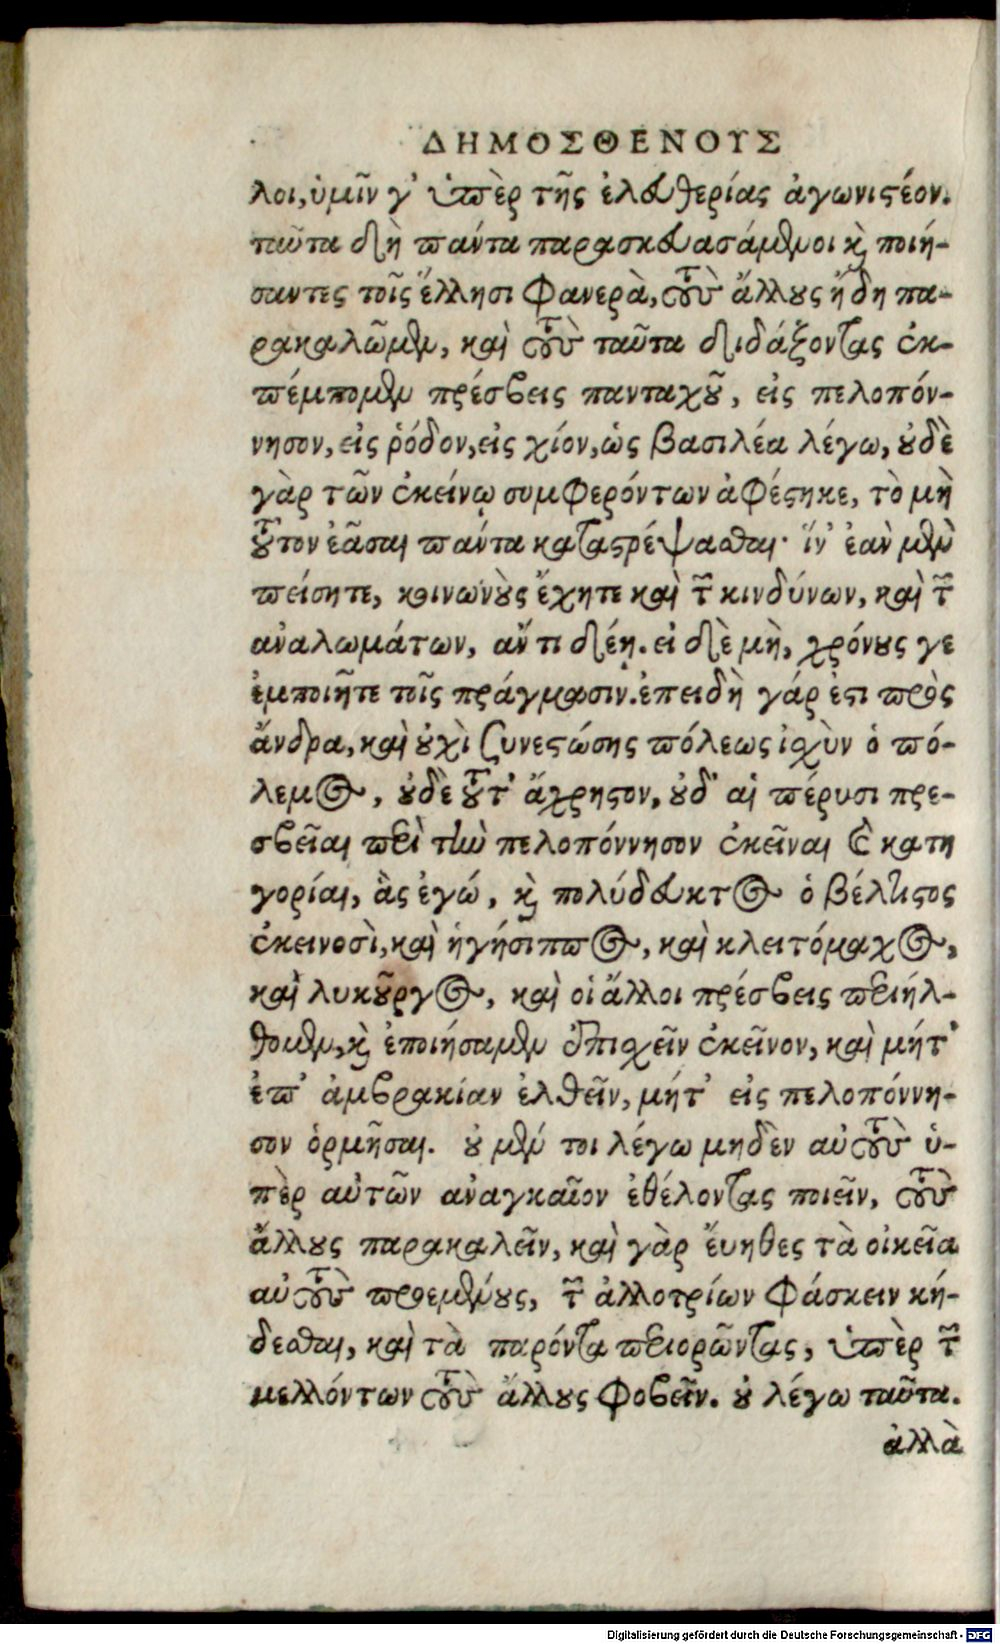 ΔΗΜΟΣΘΕΝΟΥΣ
λοι, ὑμῖν γ' ὑπὲρ τῆς ἐλευθερίας ἀγωνιστέον.
ταῦτα δὴ πάντα παρασκευασάμενοι καὶ ποιή-
σαντες τοῖς ἕλλησι φανερὰ, τοὺς ἄλλους ἤδη πα-
ρακαλῶμεν, καὶ τοὺς ταῦτα διδάξοντας ἐκ-
πέμπομεν πρέσβεις πανταχοῦ, εἰς πελοπόν-
νησον, εἰς ῥόδον, εἰς χίον, ὡς βασιλέα λέγω, οὐδὲ
γὰρ τῶν ἐκείνῳ συμφερόντων ἀφέστηκε, τὸ μὴ
τοῦτον ἐᾶσαι πάντα καταστρέψασθαι· ἵν' ἐὰν μὲν
πείσητε, κοινωνοὺς ἔχητε καὶ τῶν κινδύνων, καὶ τῶν
ἀναλωμάτων, ἄν τι δέῃ. εἰ δὲ μὴ, χρόνους γε
ἐμποιῆτε τοῖς πράγμασιν. ἐπειδὴ γάρ ἐστι πρὸς
ἄνδρα, καὶ οὐχὶ συνεστώσης πόλεως ἰσχὺν ὁ πό-
λεμος, οὐδὲ τοῦτ' ἄχρηστον, οὐδ' αἱ πέρυσι πρε-
σβεῖαι περὶ τὴν πελοπόννησον ἐκεῖναι καὶ κατη
γορίαι, ἃς ἐγώ, καὶ πολύδευκτος ὁ βέλτιστος
ἐκεινοσὶ, καὶ ἡγήσιππος, καὶ κλειτόμαχος,
καὶ λυκοῦργος, καὶ οἱ ἄλλοι πρέσβεις περιήλ-
θομεν, καὶ ἐποιήσαμεν ἐπισχεῖν ἐκεῖνον, καὶ μήτ'
ἐπ' ἀμβρακίαν ἐλθεῖν, μήτ' εἰς πελοπόννη-
σον ὁρμῆσαι. οὐ μέν τοι λέγω μηδὲν αὐτοὺς ὑ-
πὲρ αὑτῶν ἀναγκαῖον ἐθέλοντας ποιεῖν, τοὺς
ἄλλους παρακαλεῖν, καὶ γὰρ ἔυηθες τὰ οἰκεῖα
αὐτοὺς προεμένους, τῶν ἀλλοτρίων φάσκειν κή-
δεσθαι, καὶ τὰ παρόντα περιορῶντας, ὑπὲρ τῶν
μελλόντων τοὺς ἄλλους φοβεῖν. οὐ λέγω ταῦτα.
ἀλλὰ
Digitalisierung gefördert durch die Deutsche Forschungsgemeinschaft - DFG